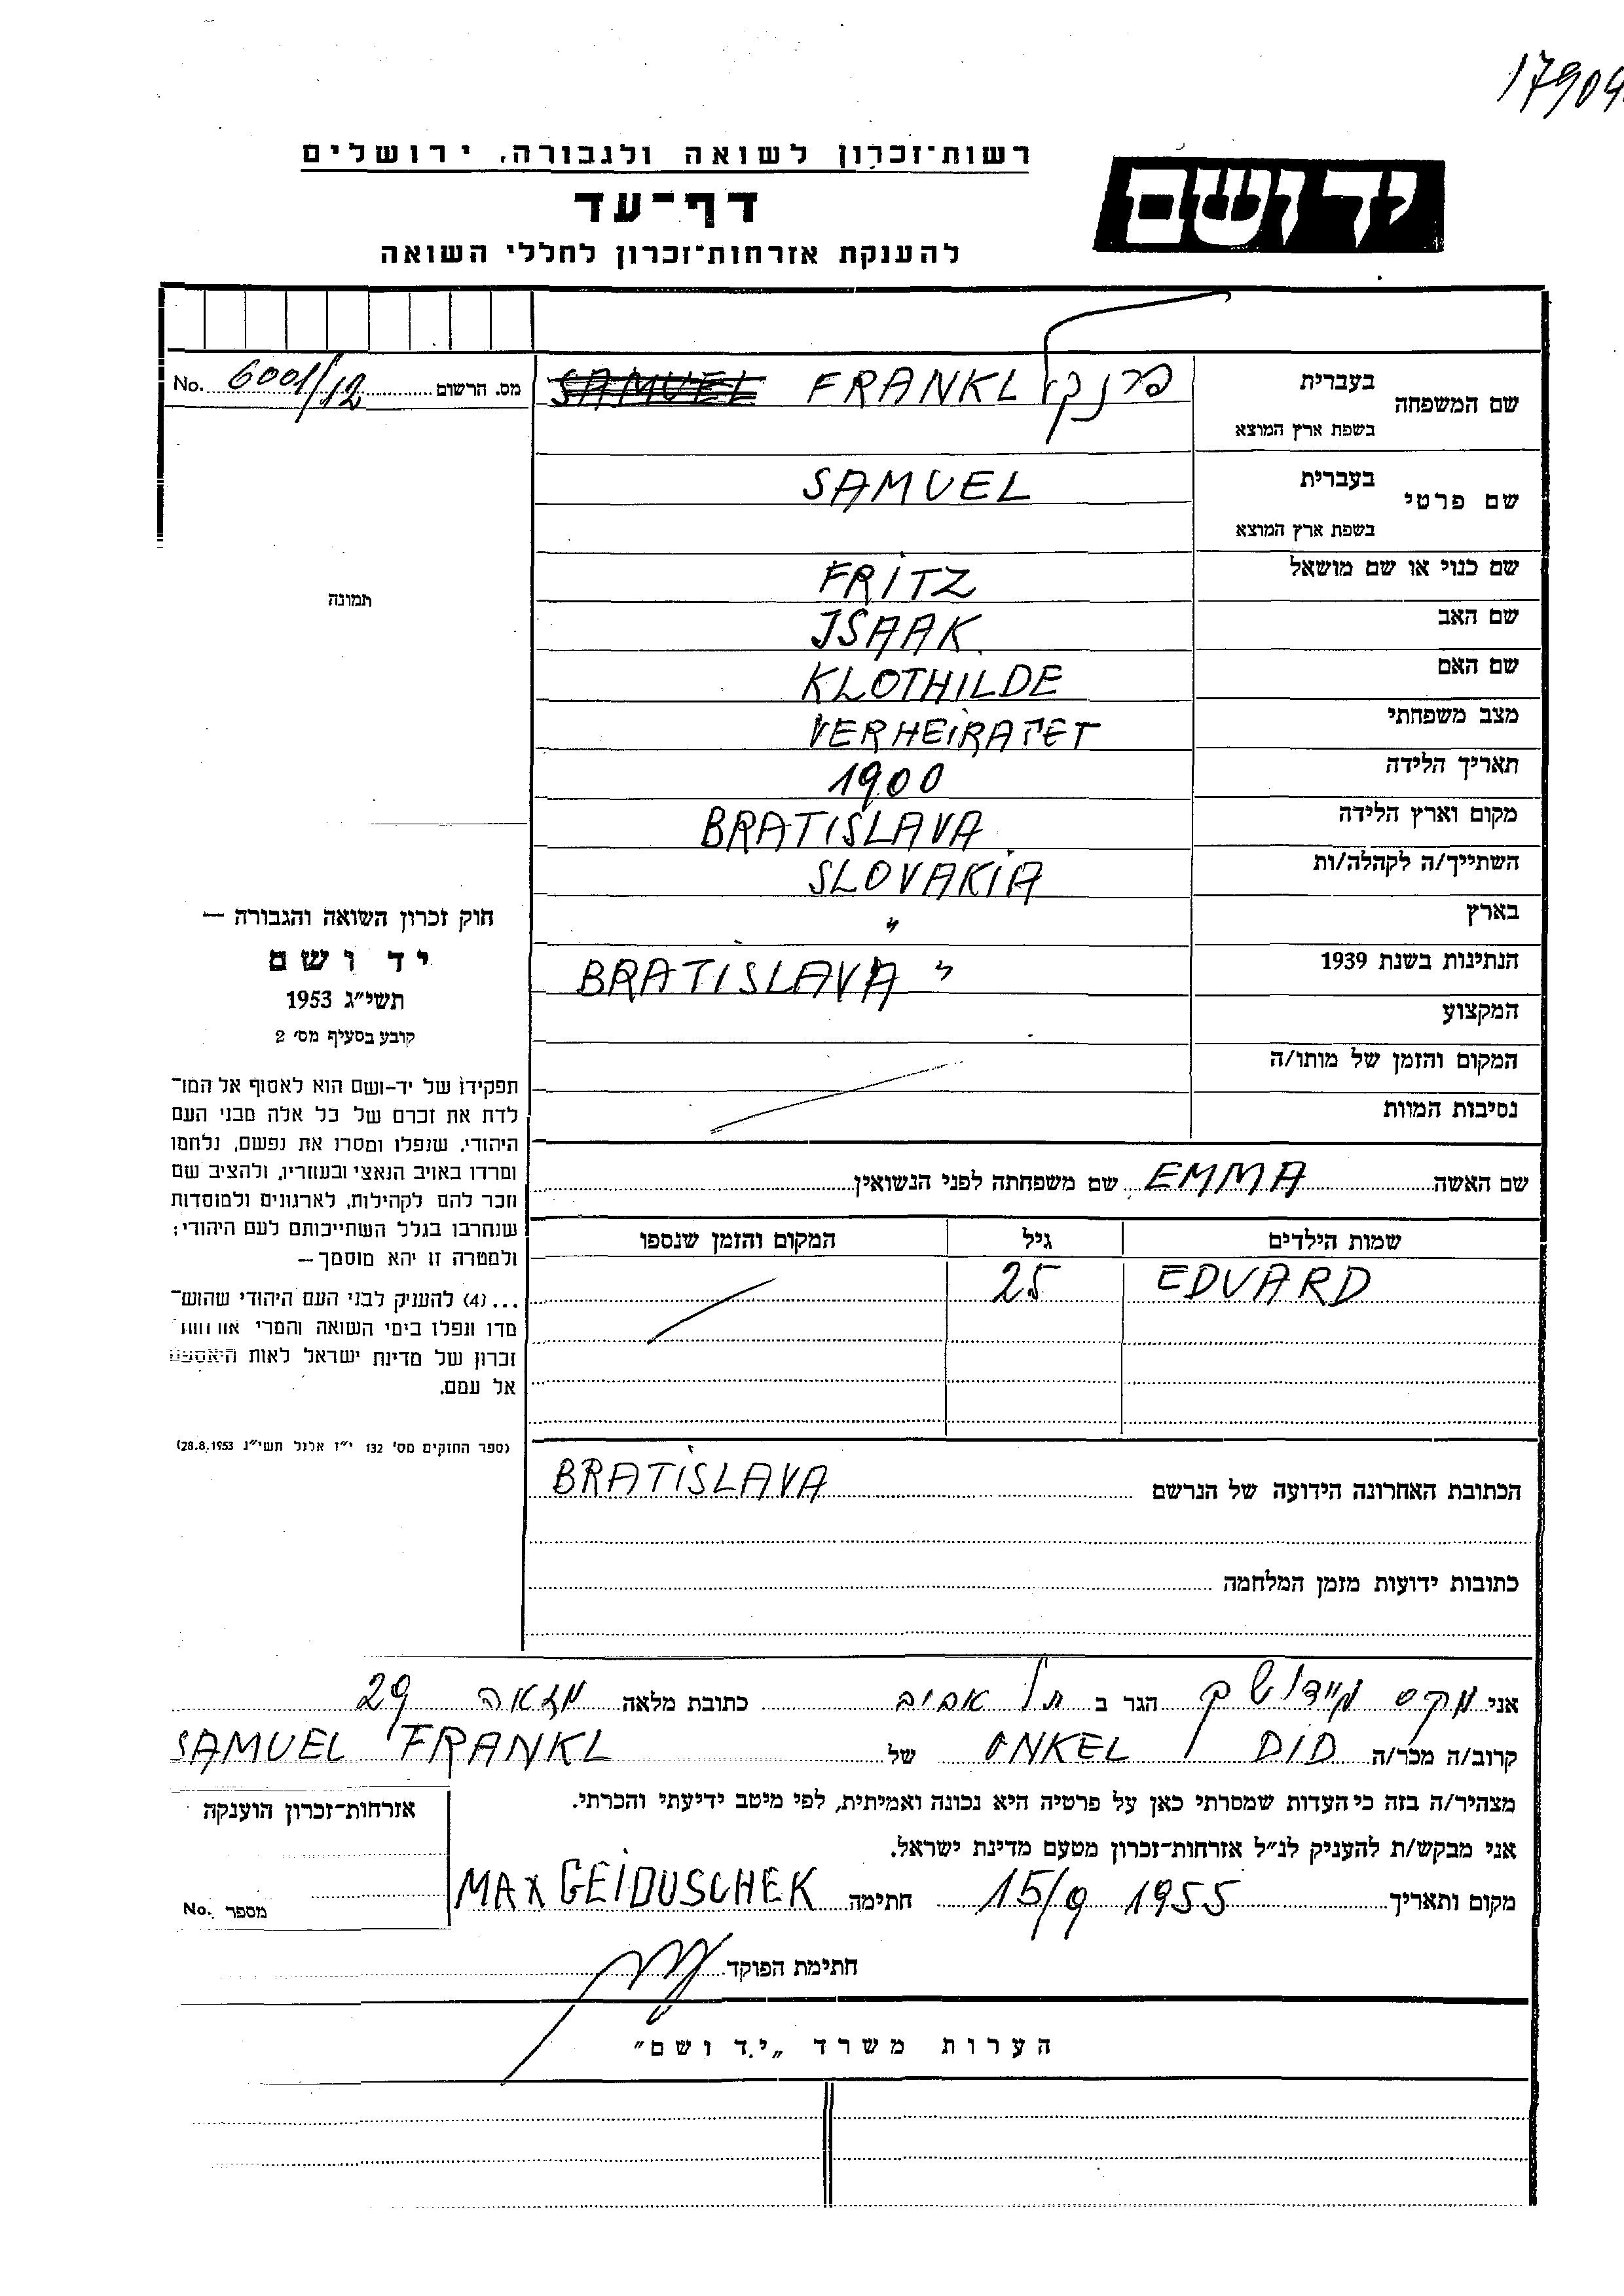 17904
רשות־זכרון לשואה ולגבורה, ירושלים
יד ושם
דף־עד
להענקת אזרחות־זכרון לחללי השואה
No. 6001/12 מס. הרשום
שם המשפחה בעברית פרנקל FRANKL SAMUEL
בשפת ארץ המוצא
שם פרטי בעברית SAMUEL
בשפת ארץ המוצא
שם כנוי או שם מושאל FRITZ
שם האב ISAAK
שם האם KLOTHILDE
מצב משפחתי VERHEIRATET
תאריך הלידה 1900
מקום וארץ הלידה BRATISLAVA
השתייך/ה לקהלה/ות SLOVAKIA
בארץ "
הנתינות בשנת 1939 " BRATISLAVA
המקצוע
המקום והזמן של מותו/ה
נסיבות המוות
תמונה
חוק זכרון השואה והגבורה —
יד ושם
תשי"ג 1953
קובע בסעיף מס' 2
תפקידו של יד-ושם הוא לאסוף אל המו־
לדת את זכרם של כל אלה מבני העם
היהודי, שנפלו ומסרו את נפשם, נלחמו
ומרדו באויב הנאצי ובעוזריו, ולהציב שם
וזכר להם לקהילות, לארגונים ולמוסדות
שנחרבו בגלל השתייכותם לעם היהודי;
ולמטרה זו יהא מוסמך—
...(4) להעניק לבני העם היהודי שהוש־
מדו ונפלו בימי השואה והמרי אזרחות
זכרון של מדינת ישראל לאות היאספם
אל עמם.
(ספר החוקים מס' 132 י"ז אלול תשי"ג 28.8.1953)
שם האשה EMMA שם משפחתה לפני הנשואין
שמות הילדים גיל המקום והזמן שנספו
EDUARD 25
הכתובת האחרונה הידועה של הנרשם BRATISLAVA
כתובות ידועות מזמן המלחמה
אני מקס הגר ב תל אביב כתובת מלאה 29
קרוב/ה מכר/ה DID ONKEL של SAMUEL FRANKL
מצהיר/ה בזה כי העדות שמסרתי כאן על פרטיה היא נכונה ואמיתית, לפי מיטב ידיעתי והכרתי.
אני מבקש/ת להעניק לנ"ל אזרחות־זכרון מטעם מדינת ישראל.
מקום ותאריך 15/9 1955 חתימה MAX GEIDUSCHEK
אזרחות־זכרון הוענקה
מספר No.
חתימת הפוקד
הערות משרד „יד ושם"